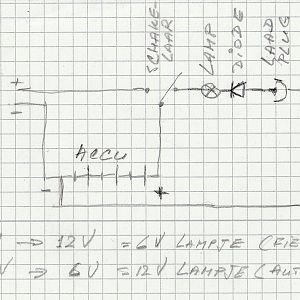 SCHAKE-
LAAR
LAMP
DIODE
LAAD
PLUG
+
-
ACCU
-
+
→ 12V = 6V LAMPJE (FIE
V → 6V = 12V LAMPJE (AUT